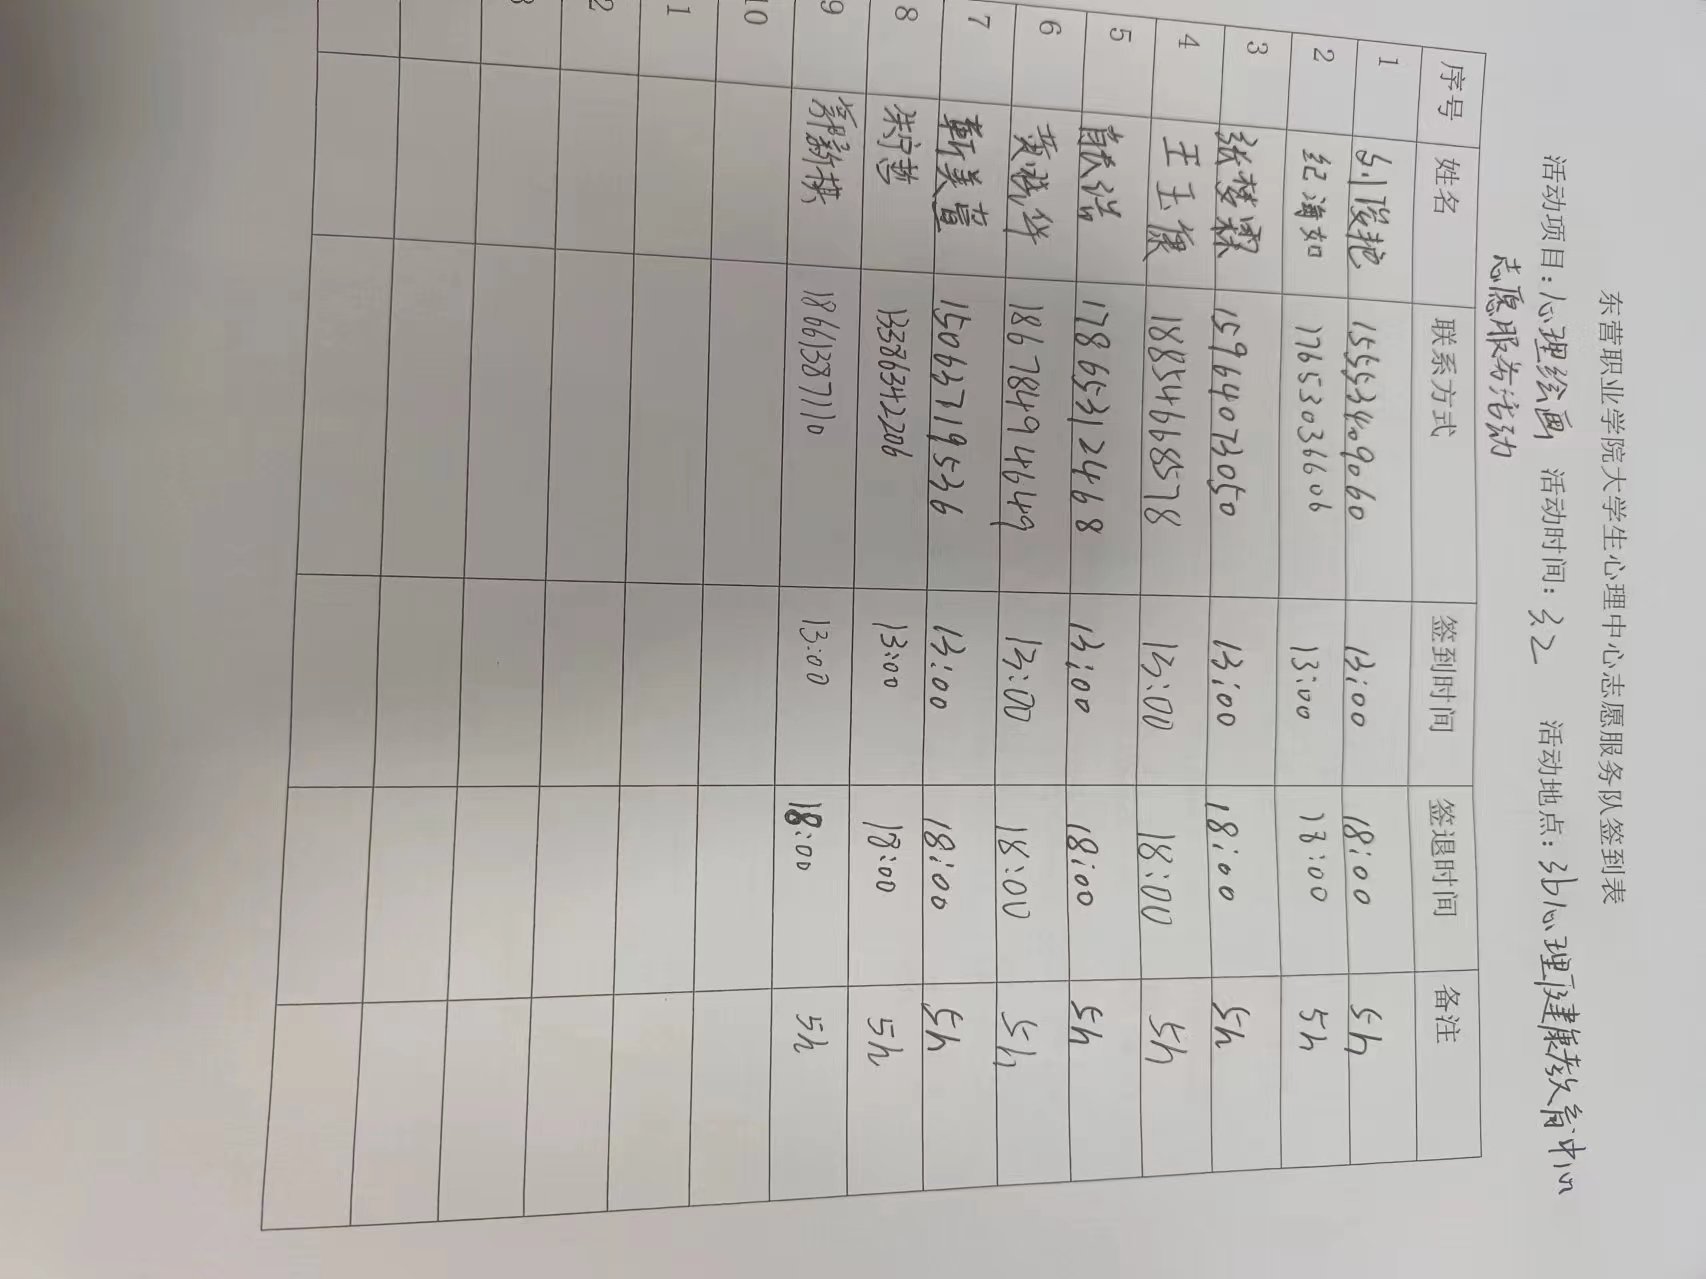 东营职业学院大学生心理中心志愿服务队签到表
活动项目：心理绘画 活动时间：3.2 活动地点：36心理健康教育中心
志愿服务活动
序号 姓名 联系方式 签到时间 签退时间 备注
1 刘俊艳 15553409060 13:00 18:00 5h
2 纪海如 17653036606 13:00 18:00 5h
3 张梦霖 15964073050 13:00 18:00 5h
4 王玉康 18854668578 13:00 18:00 5h
5 浩 17865312468 13:00 18:00 5h
6 黄 华 18678494649 13:00 18:00 5h
7 靳美萱 15063719536 13:00 18:00 5h
8 朱宁慧 13386342206 13:00 18:00 5h
9 郭新棋 18661387110 13:00 18:00 5h
10
1
2
3